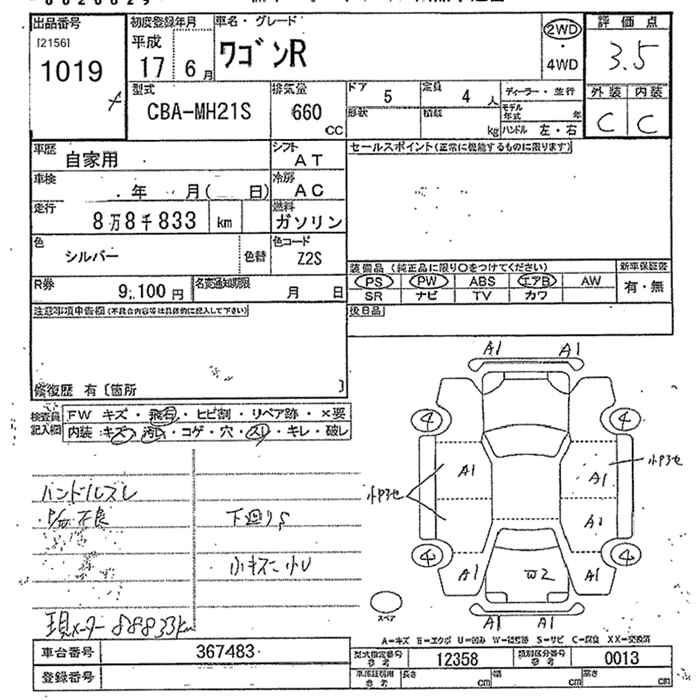 出品番号 初度登録年月 車名・グレード 2WD 評価点
121561 平成 ワゴンR ・ 3.5
1019 17 6月 4WD
型式 排気量 ドア 5 定員 4人 ディーラー・並行 外装 内装
CBA-MH21S 660 CC 形状 積載 kg モデル年式 年 C C
ハンドル 左・右
車歴 自家用 シフト AT セールスポイント(正常に機能するものに限ります)
車検 年 月( 日) 冷房 AC
走行 8万8千833 km 燃料 ガソリン
色 シルバー 色替 色コード Z2S
装備品 (純正品に限り○をつけてください) 新車保証書
R券 9,100円 名変通知期限 月 日 PS PW ABS エアB AW 有・無
SR ナビ TV カワ
注意事項申告欄(不具合内容等は具体的に記入して下さい) 後日品
修復歴 有〔箇所 〕
A1 A1
検査員記入欄 FW キズ・飛石・ヒビ割・リペア跡・×要
内装:キズ・汚レ・コゲ・穴・スレ・キレ・破レ
4 4
A1 A1
ハンドルスレ
不良 下廻りS
A1
小キズ 小U
4 4
A1 W2 A1
現メーター 88833km
スペア
A1 A1
A=キズ E=エクボ U=凹み W=補修跡 S=サビ C=腐食 XX=交換済
車台番号 367483 型式指定番号 参考 12358 類別区分番号 参考 0013
登録番号 車庫証明用 参考 長さ cm 幅 cm 高さ cm